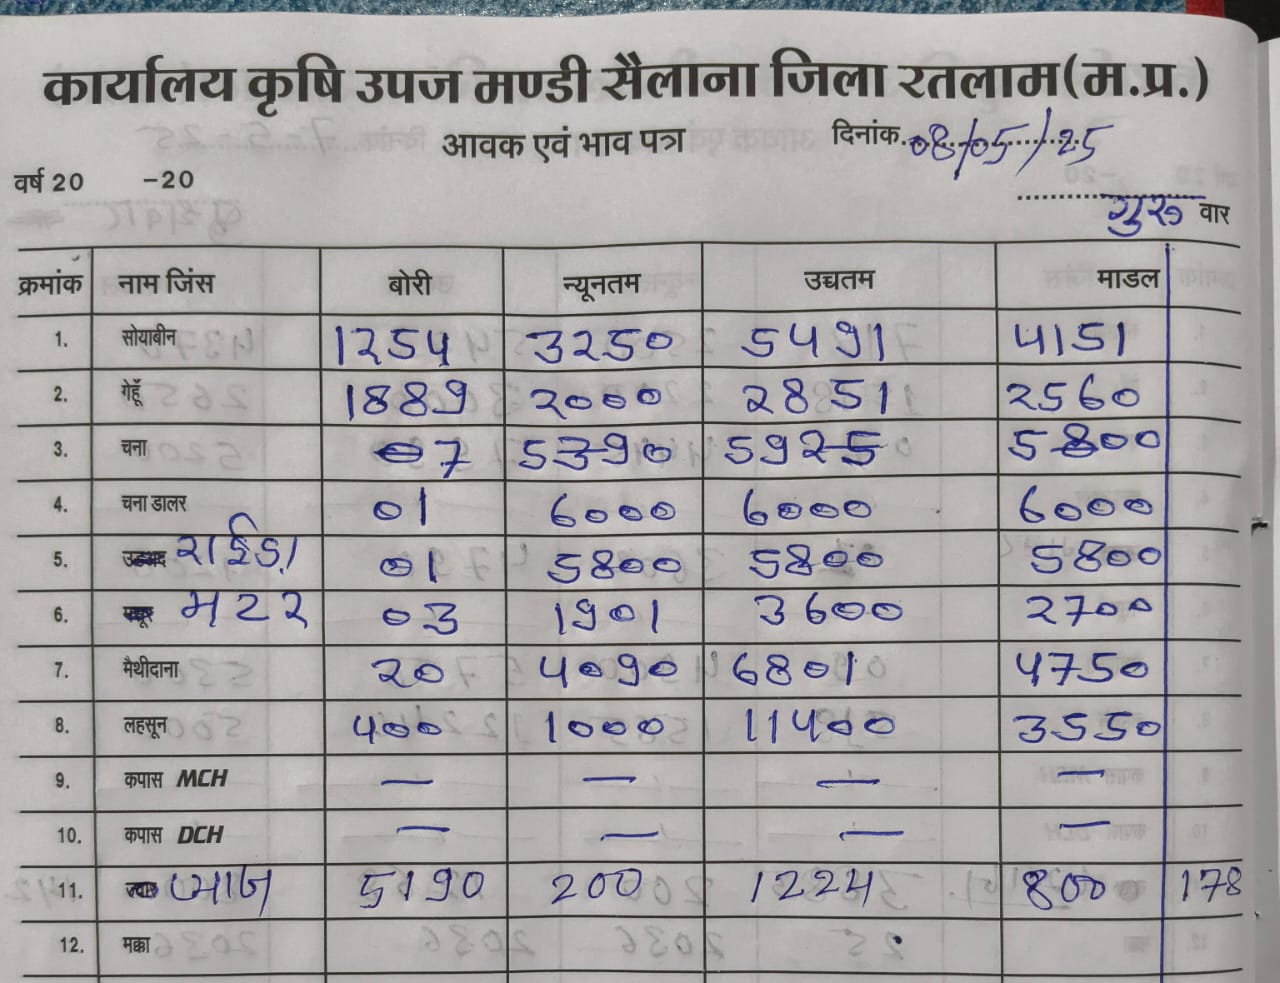 कार्यालय कृषि उपज मण्डी सैलाना जिला रतलाम(म.प्र.)
आवक एवं भाव पत्र दिनांक 08/05/25
वर्ष 20 -20
गुरु वार
क्रमांक नाम जिंस बोरी न्यूनतम उच्चतम माडल
1. सोयाबीन 1254 3250 5491 4151
2. गेहूँ 1889 2000 2851 2560
3. चना 07 5390 5925 5800
4. चना डालर 01 6000 6000 6000
5. राईडा 01 5800 5800 5800
6. मटर 03 1901 3600 2700
7. मैथीदाना 20 4090 6801 4750
8. लहसून 400 1000 11400 3550
9. कपास MCH — — — —
10. कपास DCH — — — —
11. प्याज 5190 200 1224 800 178
12. मक्का